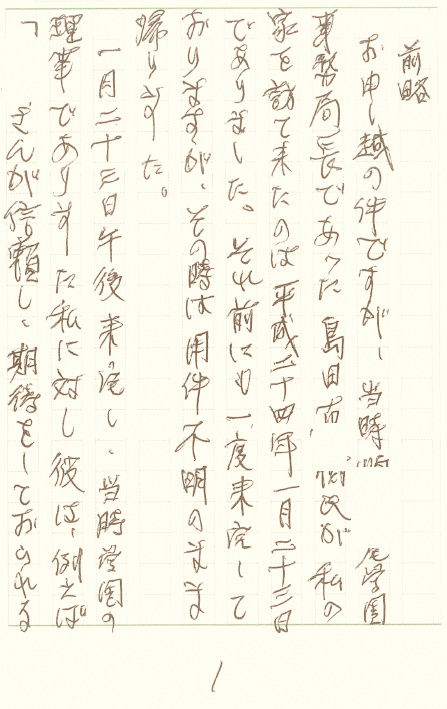 前略
お申し越の件ですが、当時 学園
事務局長であった島田 氏が私の
家を訪て来たのは平成二十四年一月二十三日
でありました。それ前にも一度来宅して
おりますが、その時は用件不明のまま
帰りました。
一月二十三日午後来宅し、当時学園の
理事でありました私に対し彼は、例えば
「 さんが信頼し、期待をしておられる
1